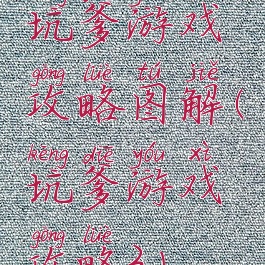 坑爹游戏
gōng lüè tú jiě
攻略图解(
kēng diē yóu xì
坑爹游戏
gōng lüè
攻略